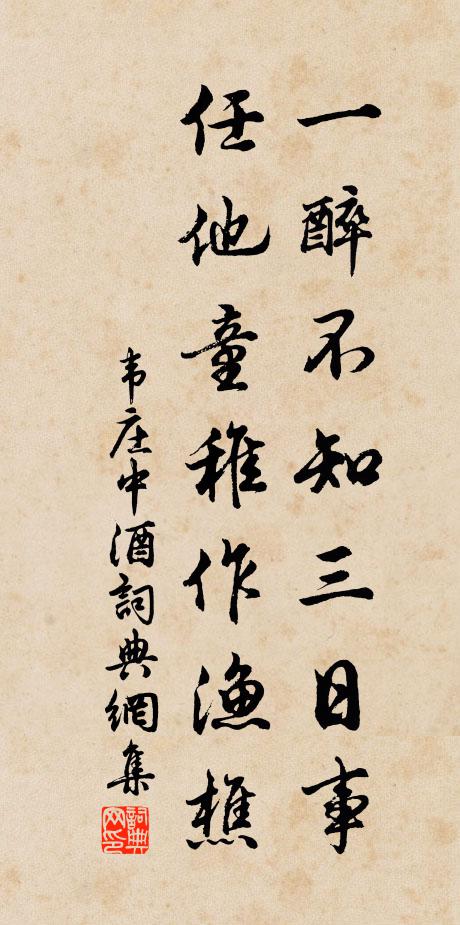 一醉不知三日事
任他童稚作漁樵
韦庄中酒詞典網集
詞典网印